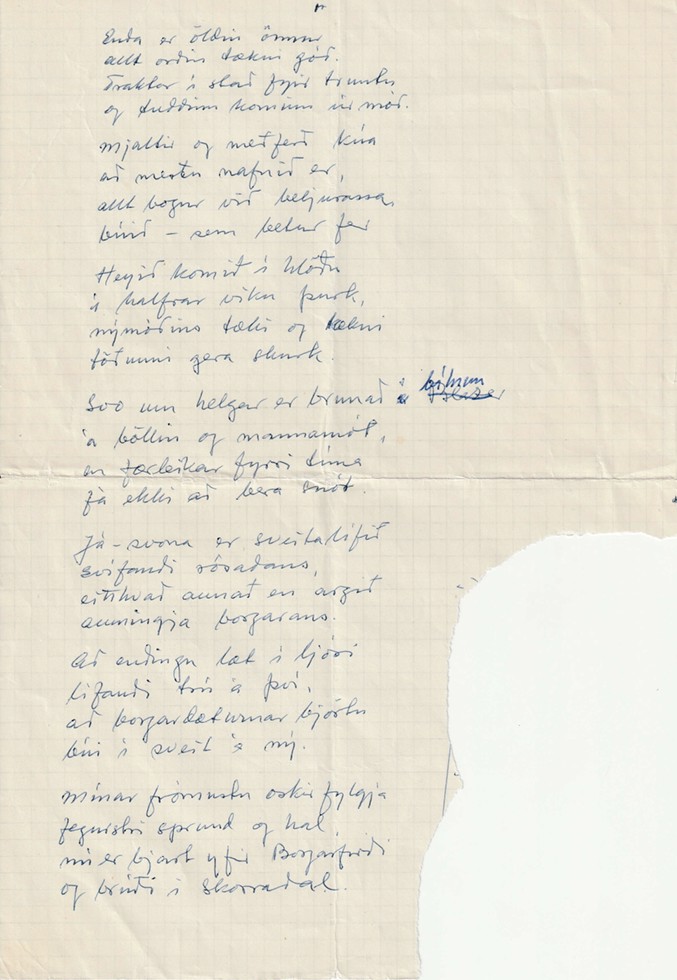 Enda er öldin önnur
allt orðin tækni góð.
Traktor í stað fyrir truntu
og tuddinn kominn úr móð.
Mjaltir og meðferð kúa
að mestu nafnið er,
allt bogur við beljurassa
búið – sem betur fer
Heyið komið í hlöðu
í hálfrar viku þurk,
nýmóðins tæki og tækni
töðunni gera skurk.
Svo um helgar er brunað í bílnum
á böllin og mannamót,
en færleikar fyrri tíma
fá ekki að bera snót.
Já – svona er sveitalífið
svífandi rósadans,
eitthvað annað en argið
aumingja borgarans.
Að endingu læt í ljósi
lifandi trú á því,
að borgardæturnar björtu
búi í sveit á ný.
Mínar frómustu óskir fylgja
fegursti sprund og hal
nú er bjart yfir Borgarfirði
og brúði í Skorradal.